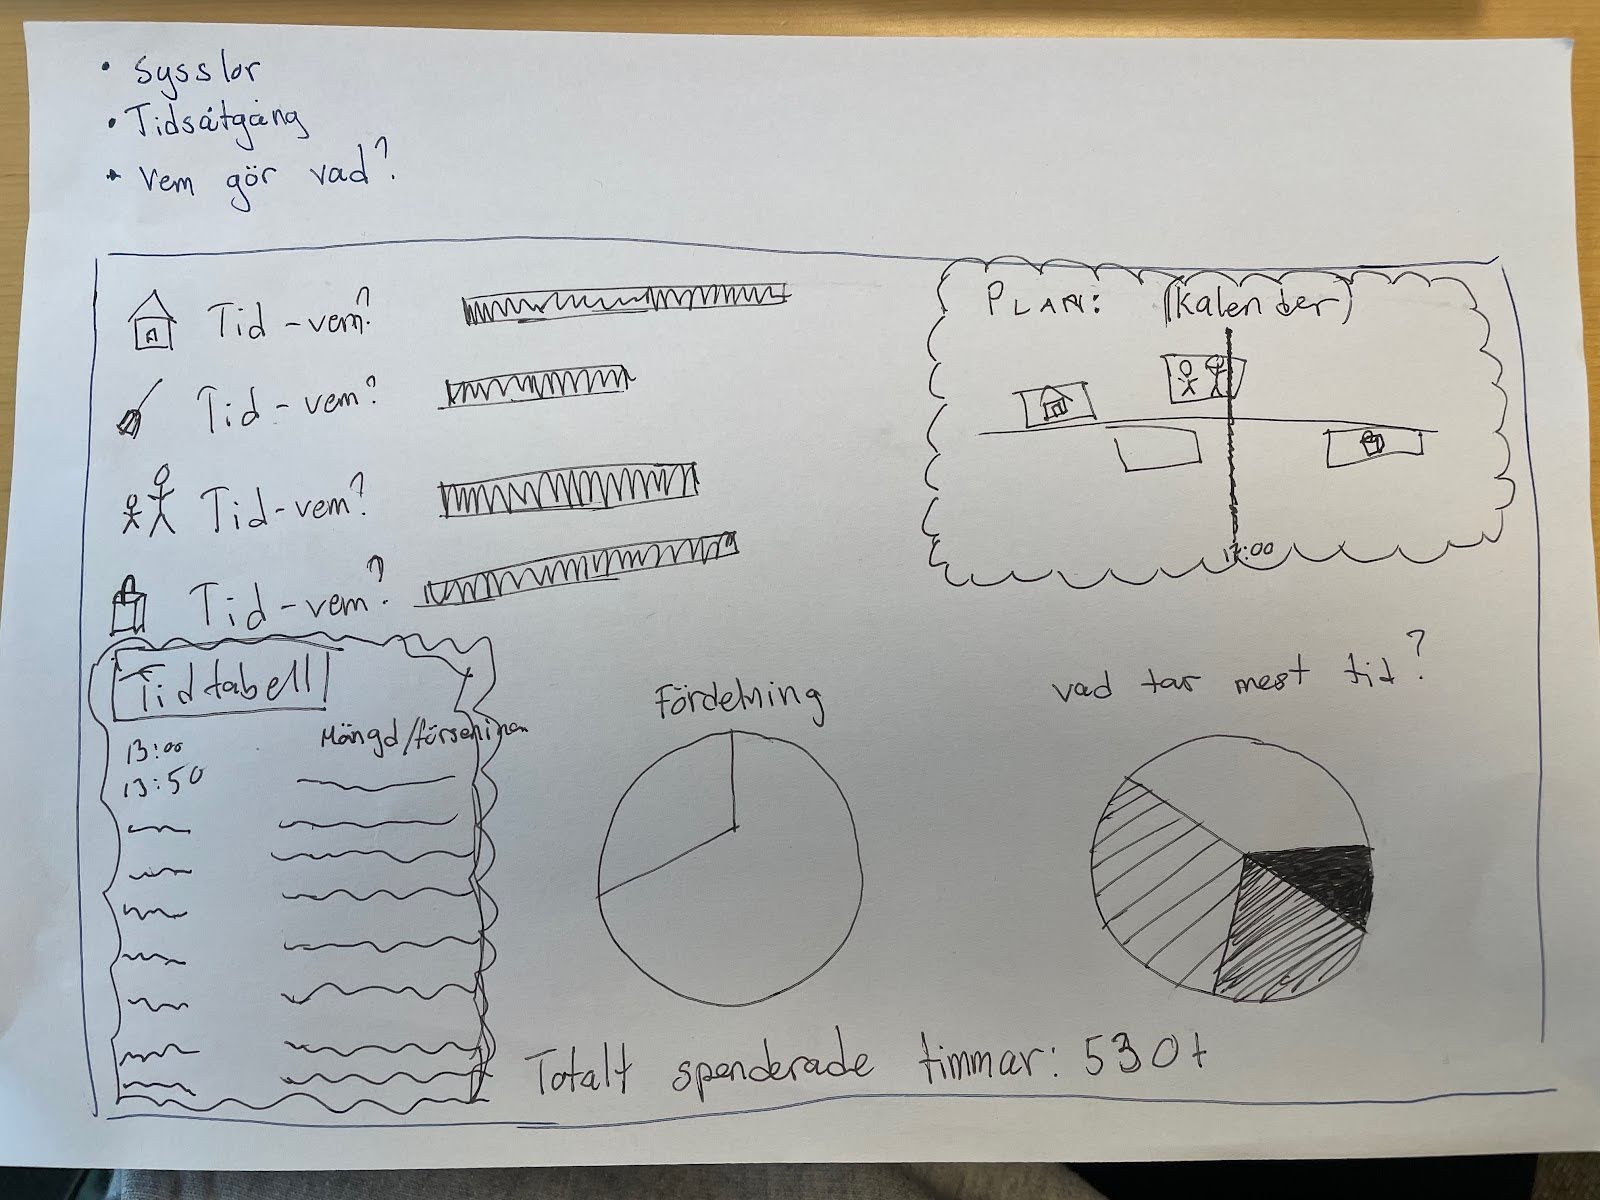 • Sysslor
• Tidsåtgång
• Vem gör vad?
Tid - vem?
Tid - vem?
Tid - vem?
Tid - vem?
PLAN: (Kalender)
17:00
Tidtabell
Mängd/förseningen
13:00
13:50
Fördelning
vad tar mest tid?
Totalt spenderade timmar: 530t